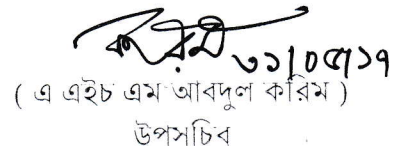 করিম ৩১/০৫/১৭
( এ এইচ এম আবদুল করিম )
উপসচিব